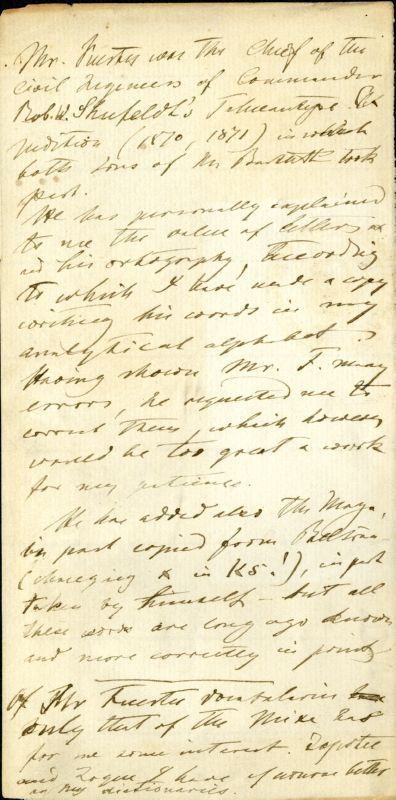 Mr. Fuertes was the Chief of the
Civil Engineers of Commander
Rob. W. Shufeldt's Tehuantepec Ex
pedition (1870, 1871) in which
both sons of Mr. Bartlett took
part.
He has personally explained
to me the value of letters in
his orthography, according
to which I have made a copy
writing his words in my
analytical alphabet.
Having shown Mr. F. many
errors, he requested me to
correct them, which however
would be too great a work
for my patience.
He has added also the Maya,
in part copied from
(changing x in KS!), in part
taken by himself – but all
these words are long ago known
and more correctly in print
Of Mr Fuertes vocabularies
only that of the Mixe has
for me some interest. Zapotec
and Zoque I have of course better
in my dictionaries.